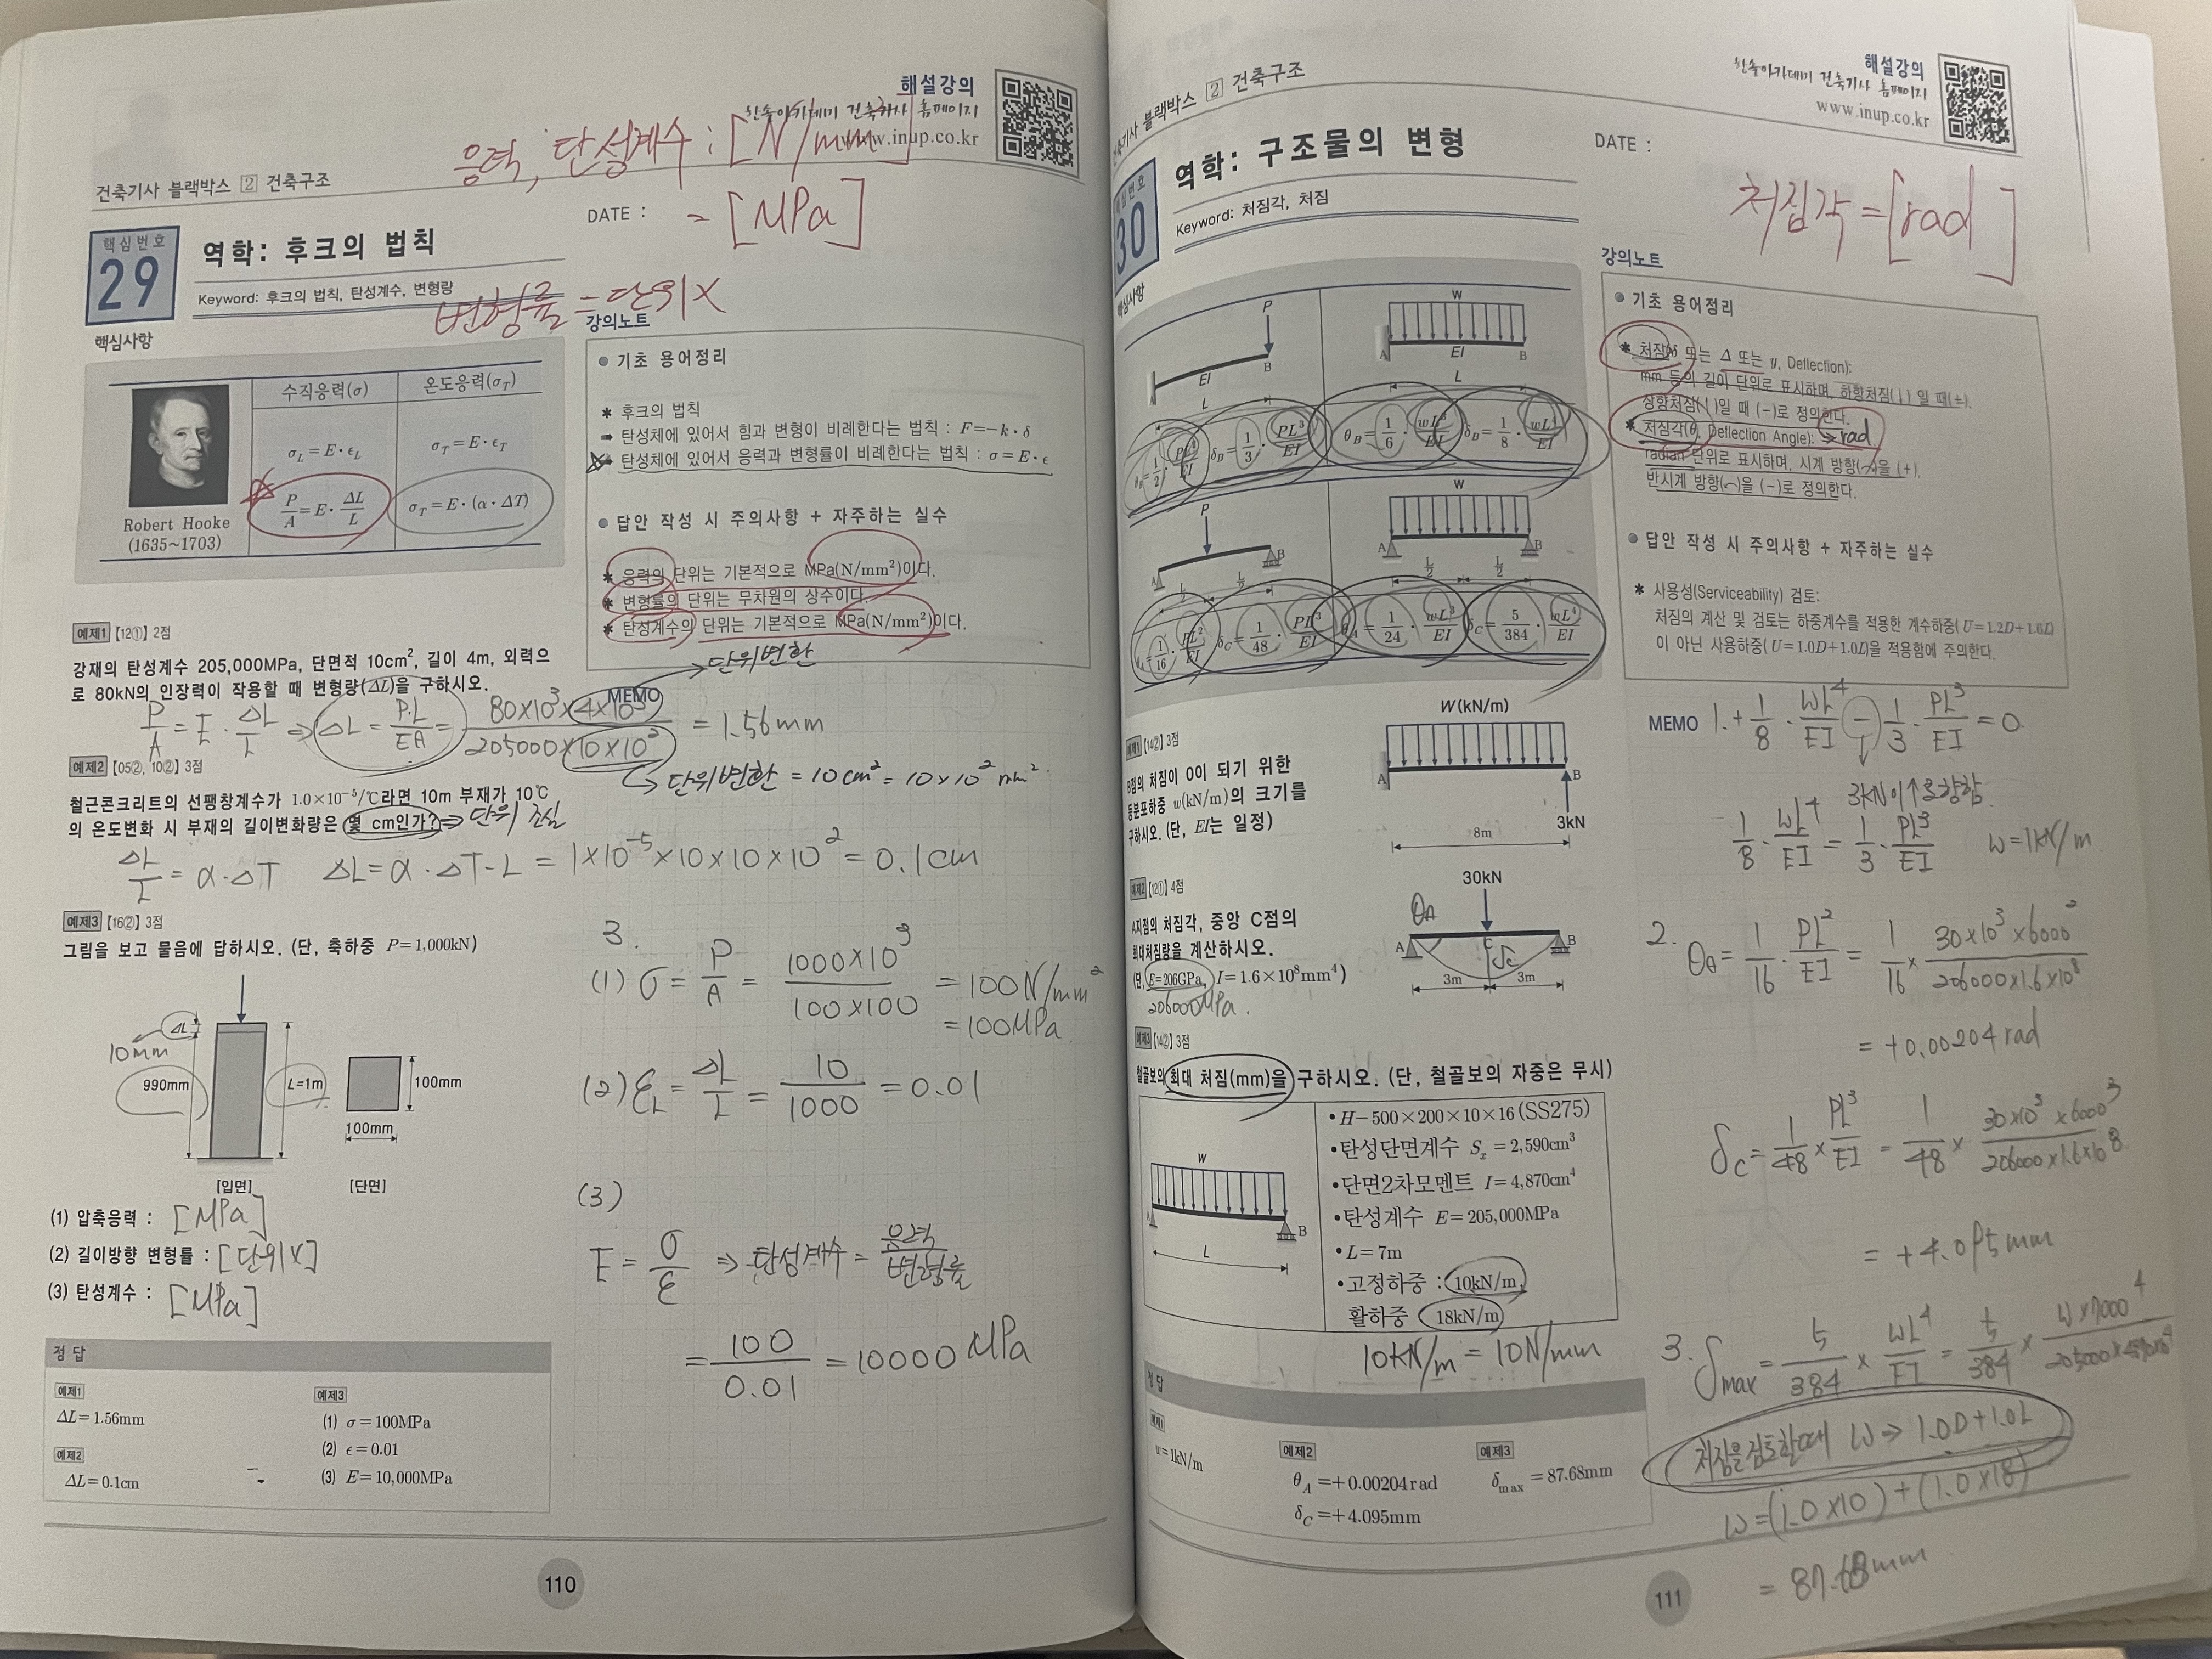 해설강의
한솔아카데미 건축기사 홈페이지
www.inup.co.kr
응력, 탄성계수 : [N/mm²]
= [MPa]
건축기사 블랙박스 2 건축구조
DATE :
핵심번호
29
역학: 후크의 법칙
Keyword: 후크의 법칙, 탄성계수, 변형량
변형률 = 단위X
핵심사항
수직응력(σ) 온도응력(σ_T)
σ_L = E·ϵ_L σ_T = E·ϵ_T
P/A = E·ΔL/L σ_T = E·(α·ΔT)
Robert Hooke
(1635~1703)
강의노트
● 기초 용어정리
✱ 후크의 법칙
➡ 탄성체에 있어서 힘과 변형이 비례한다는 법칙 : F=−k·δ
➡ 탄성체에 있어서 응력과 변형률이 비례한다는 법칙 : σ=E·ϵ
● 답안 작성 시 주의사항 + 자주하는 실수
✱ 응력의 단위는 기본적으로 MPa(N/mm²)이다.
✱ 변형률의 단위는 무차원의 상수이다.
✱ 탄성계수의 단위는 기본적으로 MPa(N/mm²)이다.
→ 단위변환
MEMO
예제1 【12①】 2점
강재의 탄성계수 205,000MPa, 단면적 10cm², 길이 4m, 외력으
로 80kN의 인장력이 작용할 때 변형량(ΔL)을 구하시오.
P/A = E·ΔL/L ⇒ ΔL = P·L/EA = 80×10³×4×10³ / 205000×10×10² = 1.56mm
↳ 단위변환 = 10cm² = 10×10² mm²
예제2 【05②, 10②】 3점
철근콘크리트의 선팽창계수가 1.0×10⁻⁵/℃라면 10m 부재가 10℃
의 온도변화 시 부재의 길이변화량은 몇 cm인가? ⇒ 단위 조심
ΔL/L = α·ΔT ΔL = α·ΔT·L = 1×10⁻⁵×10×10×10² = 0.1cm
예제3 【16②】 3점
그림을 보고 물음에 답하시오. (단, 축하중 P=1,000kN)
ΔL
10mm
990mm
L=1m
100mm
100mm
[입면] [단면]
(1) 압축응력 : [MPa]
(2) 길이방향 변형률 : [단위X]
(3) 탄성계수 : [MPa]
3.
(1) σ = P/A = 1000×10³ / 100×100 = 100N/mm²
= 100MPa
(2) ε_L = ΔL/L = 10/1000 = 0.01
(3)
E = σ/ε ⇒ 탄성계수 = 응력/변형률
= 100/0.01 = 10000 MPa
정답
예제1
ΔL=1.56mm
예제2
ΔL=0.1cm
예제3
(1) σ=100MPa
(2) ϵ=0.01
(3) E=10,000MPa
110
건축기사 블랙박스 2 건축구조
해설강의
한솔아카데미 건축기사 홈페이지
www.inup.co.kr
DATE :
처짐각 = [rad]
핵심번호
30
역학: 구조물의 변형
Keyword: 처짐각, 처짐
핵심사항
P
B
EI
L
w
A EI B
L
θ_B = 1/2·PL²/EI δ_B = 1/3·PL³/EI θ_B = 1/6·wL³/EI δ_B = 1/8·wL⁴/EI
P
A B
L/2 L/2
w
A B
L/2 L/2
θ_A = 1/16·PL²/EI δ_C = 1/48·PL³/EI θ_A = 1/24·wL³/EI δ_C = 5/384·wL⁴/EI
강의노트
● 기초 용어정리
✱ 처짐(δ 또는 Δ 또는 y, Deflection):
mm 등의 길이 단위로 표시하며, 하향처짐(↓) 일 때(+),
상향처짐(↑)일 때 (−)로 정의한다.
✱ 처짐각(θ, Deflection Angle): ⇒ rad
radian 단위로 표시하며, 시계 방향(⌒)을 (+),
반시계 방향(⌒)을 (−)로 정의한다.
● 답안 작성 시 주의사항 + 자주하는 실수
✱ 사용성(Serviceability) 검토:
처짐의 계산 및 검토는 하중계수를 적용한 계수하중(U=1.2D+1.6L)
이 아닌 사용하중(U=1.0D+1.0L)을 적용함에 주의한다.
예제1 【14②】 3점
B점의 처짐이 0이 되기 위한
등분포하중 w(kN/m)의 크기를
구하시오. (단, EI는 일정)
W(kN/m)
A B
3kN
8m
MEMO 1. +1/8·WL⁴/EI − 1/3·PL³/EI = 0.
3kN이 ↑로 향함.
1/8·WL⁴/EI = 1/3·PL³/EI W=1kN/m
예제2 【12①】 4점
A지점의 처짐각, 중앙 C점의
최대처짐량을 계산하시오.
(단, E=206GPa, I=1.6×10⁸mm⁴)
206000MPa.
30kN
θA
A C B
δc
3m 3m
2. θ_A = 1/16·PL²/EI = 1/16 × 30×10³×6000² / 206000×1.6×10⁸
= +0.00204 rad
δ_C = 1/48 × PL³/EI = 1/48 × 30×10³×6000³ / 206000×1.6×10⁸
= +4.095mm
예제3 【14②】 3점
철골보의 최대 처짐(mm)을 구하시오. (단, 철골보의 자중은 무시)
w
A B
L
•H−500×200×10×16(SS275)
•탄성단면계수 S_x=2,590cm³
•단면2차모멘트 I=4,870cm⁴
•탄성계수 E=205,000MPa
•L=7m
•고정하중 : 10kN/m,
활하중 18kN/m
10kN/m = 10N/mm
3. δ_max = 5/384 × WL⁴/EI = 5/384 × W×7000⁴ / 205000×4870×10⁴
처짐을 검토할때 W ⇒ 1.0D+1.0L
W=(1.0×10)+(1.0×18)
= 87.68mm
정답
예제1
w=1kN/m
예제2
θ_A=+0.00204rad
δ_C=+4.095mm
예제3
δ_max=87.68mm
111